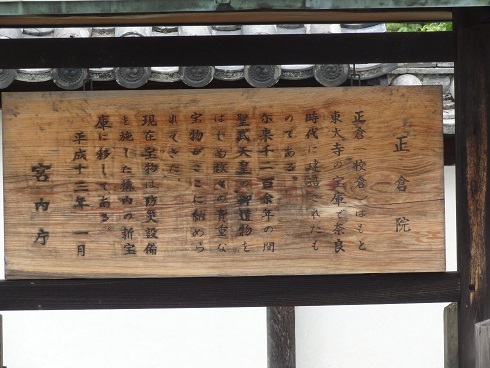 正倉院
正倉（校倉）はもと
東大寺の宝庫で奈良
時代に建造されたも
のである
尓来千二百余年の間
聖武天皇の御遺物を
はじめ数々の貴重な
宝物がここに納めら
れてきた。
現在宝物は防災設備
を施した構内の新宝
庫に移してある。
平成十二年 一月
宮内庁